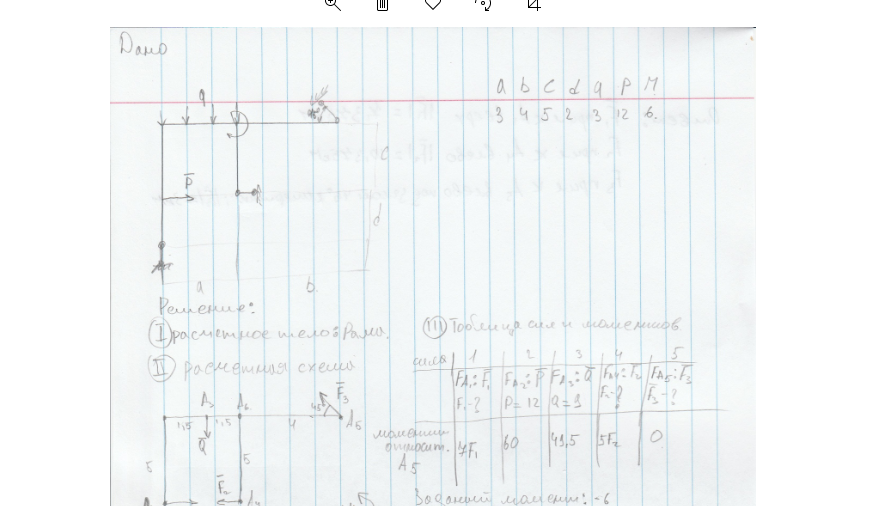 Дано
a b c d q P M
3 4 5 2 3 12 6.
q
c
P
d
a b
Решение:
I расчетное тело: Рама.
II расчетная схема
III Таблица сил и моментов
сила 1 2 3 4 5
F̅A₁: F̅₁ F̅A₂: P̅ F̅A₃: Q̅ F̅A₄: F̅₂ F̅A₅: F̅₃
F₁-? P=12 Q=9 F₂-? F₃-?
моменты относит. A₅ 7F₁ 60 49,5 5F₂ 0
A₃ F̅₃
45° A₅
1,5 1,5 4
Q̅
5 5
F̅₂ A₄
момент: -6